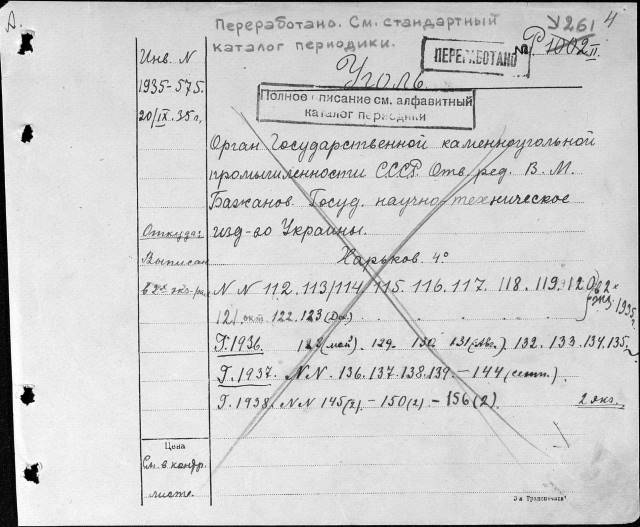 А.
Переработано. См. стандартный
каталог периодики.
У261
4
№ Р 1002 II
ПЕРЕРАБОТАНО
Инв. N
1935-575.
20/IX.35 г.
Уголь.
Полное описание см. алфавитный
каталог периодики
Орган Государственной каменноугольной
промышленности СССР. Отв. ред. В. М.
Бажанов. Госуд. научно-техническое
изд-во Украины.
Харьков. 4°
Откуда
Выписан
в 2х экз-рах
N N 112. 113/114. 115. 116. 117. 118. 119. 120
в 2х экз. 1935 г.
121 окт. 122. 123 (Дек.)
Г. 1936. (май). 129. 130 131 (Авг.) 132. 133. 134. 135
Г. 1937. N N. 136. 137. 138. 139. – 144 (сент.).
Г. 1938. N N 145 (2). – 150 (2) – 156 (2)
2 экз.
Цена
См. в контр.
листе.